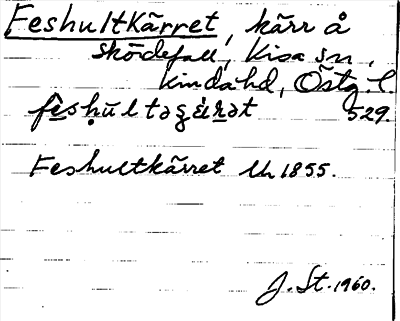 Feshultkärret, kärr å
sködefall, Kisa sn,
Kinda hd, Östg. l.
529
Feshultkärret Lh 1855.
J. St. 1960.